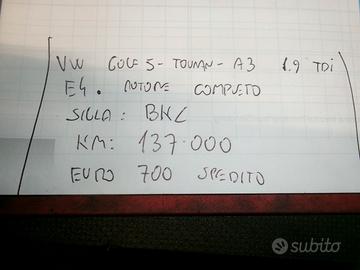 VW GOLF 5 - TOURAN - A3 1.9 TDI
E4. MOTORE COMPLETO
SIGLA: BKC
KM: 137.000
EURO 700 SPEDITO
subito